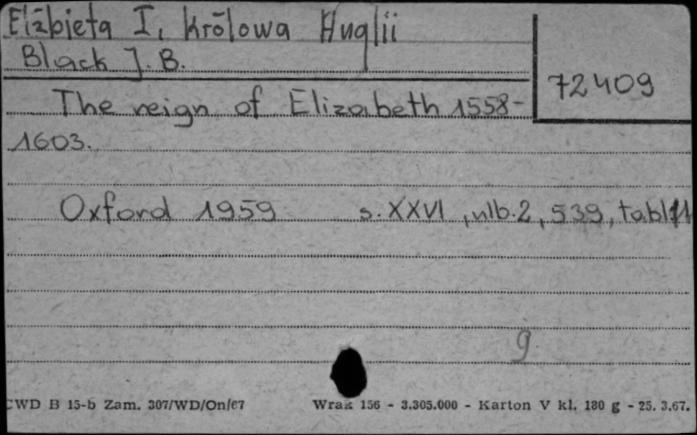 Elżbieta I, Królowa Anglii
Black J. B.
72409
The reign of Elizabeth 1558-
1603.
Oxford 1959 s. XXVI, nlb. 2, 539, tabl.
g
CWD B 15-b Zam. 307/WD/On/67 Wrak 156 - 3.305.000 - Karton V kl. 180 g - 25. 3.67.